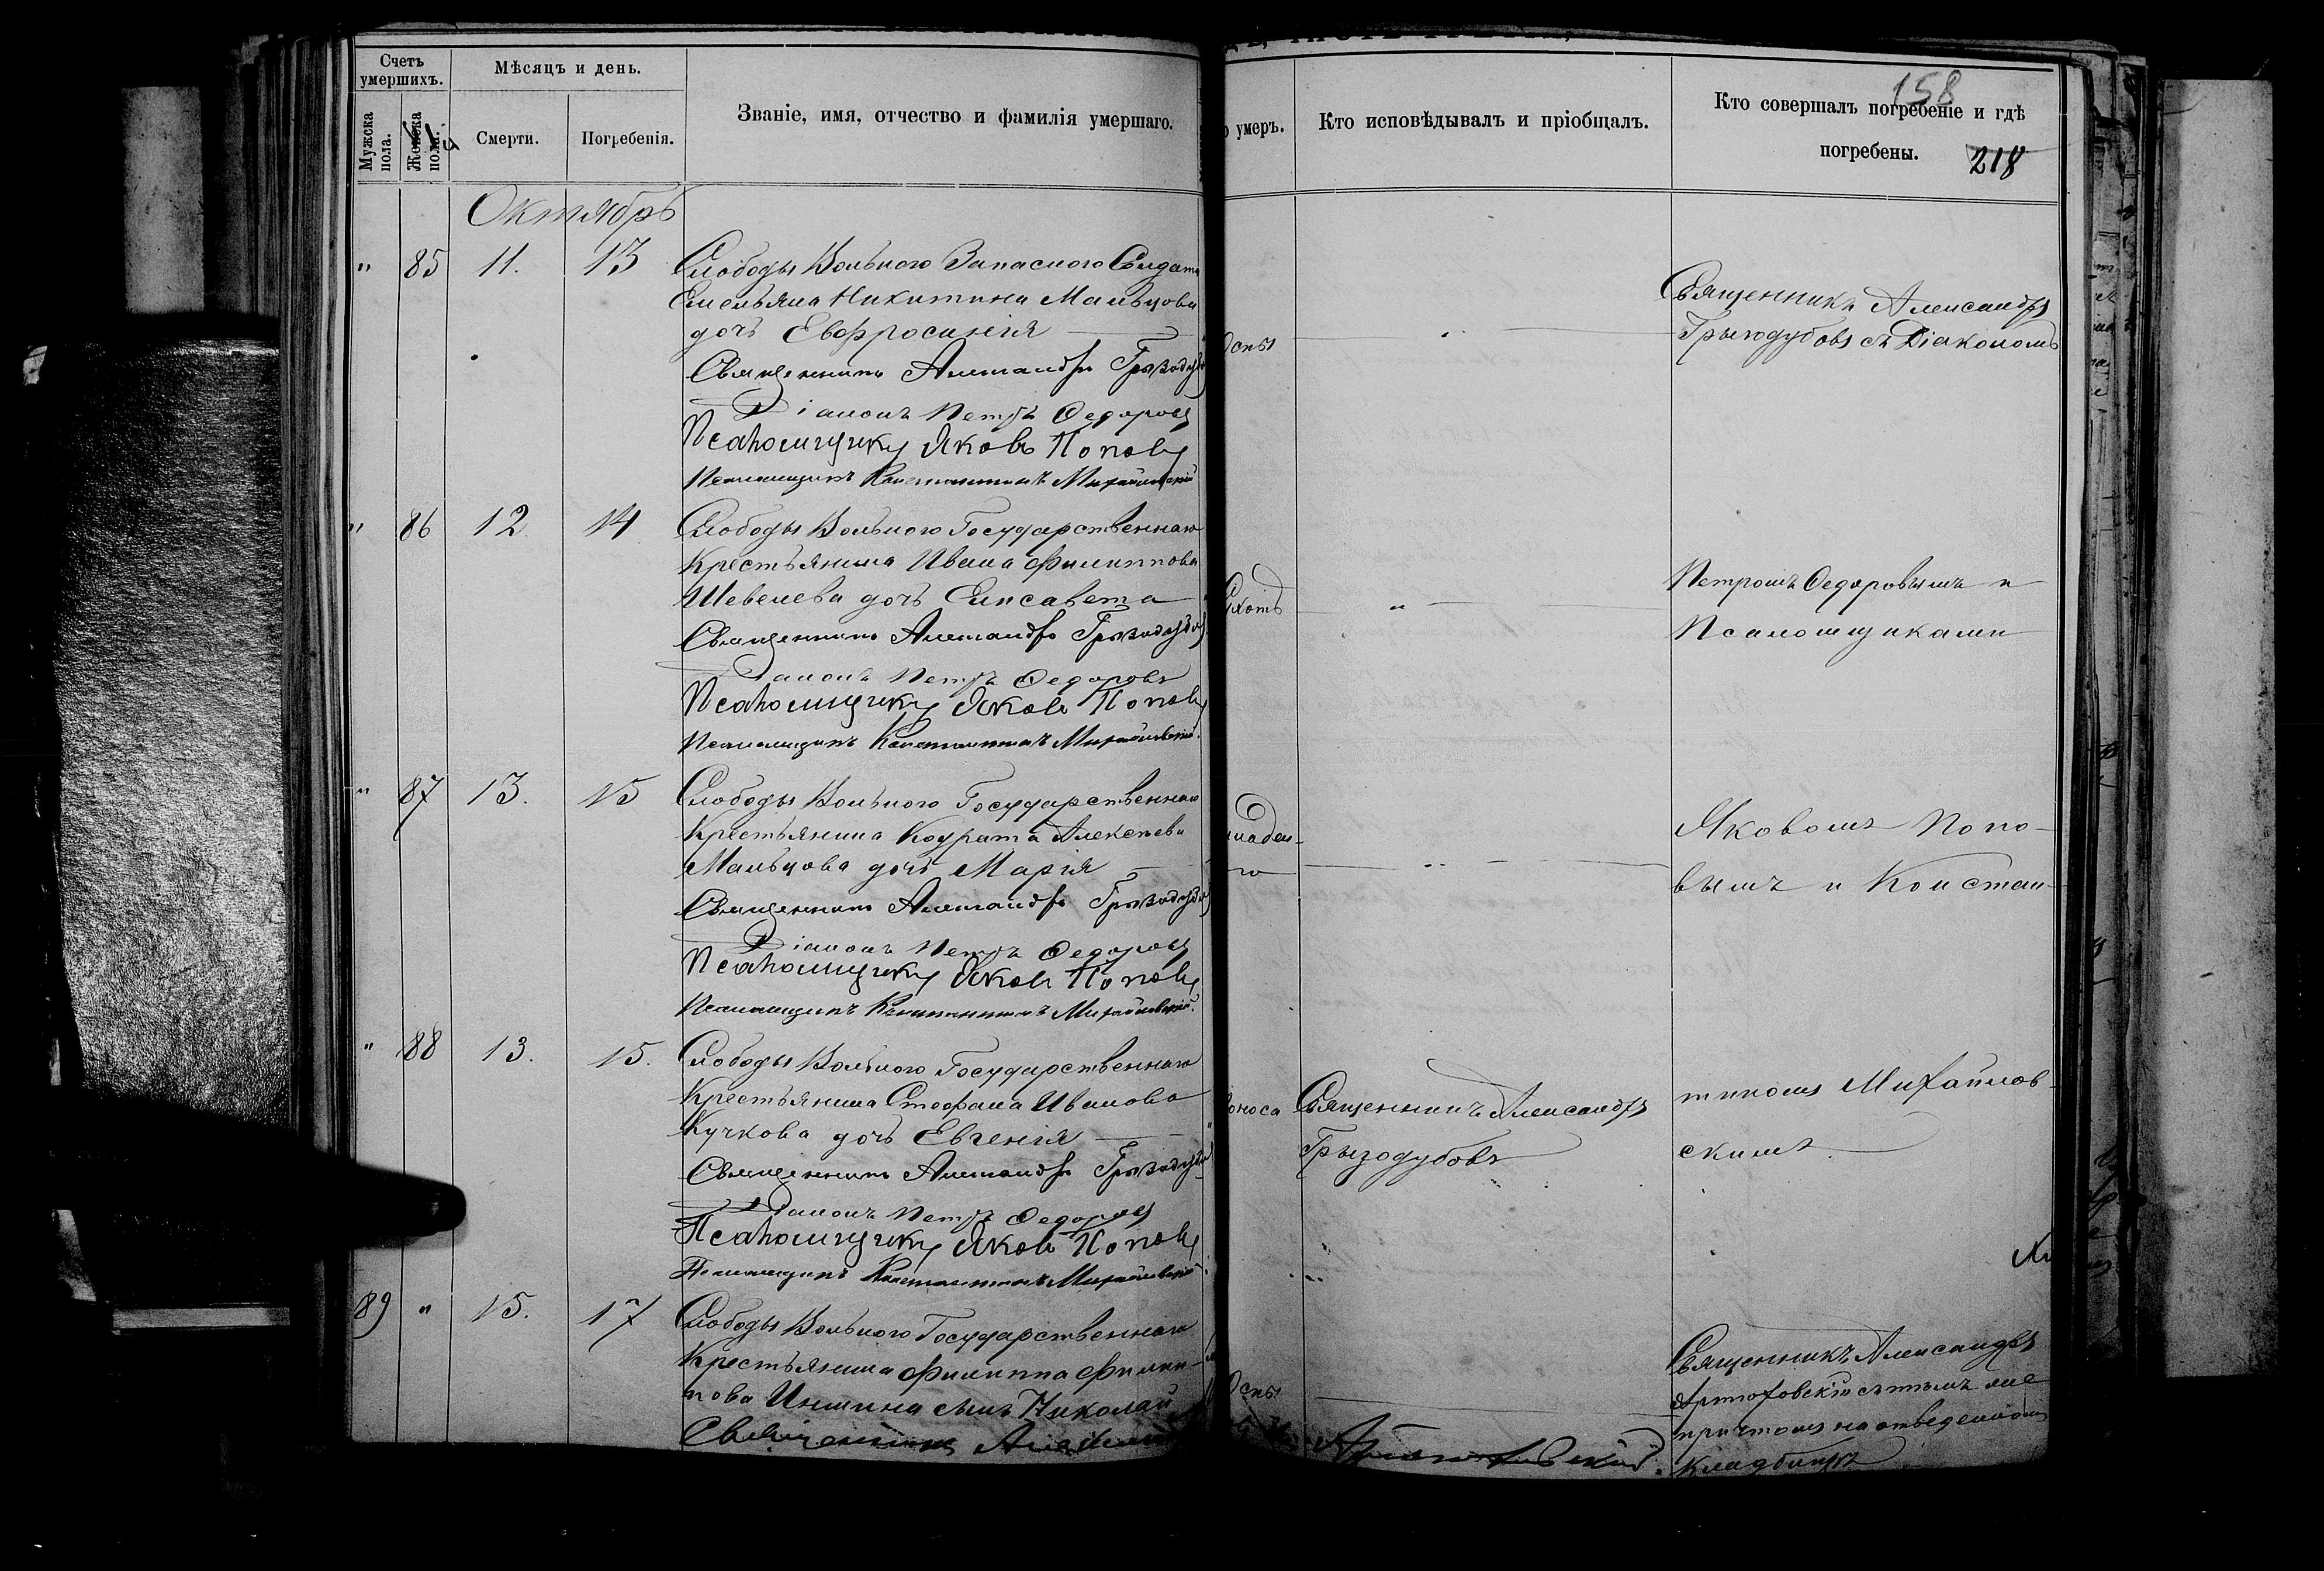 Счетъ
умершихъ.
Мѣсяцъ и день.
Мужска
пола.
Женска
пола.
Смерти.
Погребенія.
Званіе, имя, отчество и фамилія умершаго.
Октябрь
" 85 11. 13
Слободы Вольного Запасного Солдата
Емельяна Никитина Мальцова
дочь Евфросинія
Священникъ Александръ Грызодубовъ
Діаконъ Петръ Федоровъ
Псаломщикъ Яковъ Поповъ
Псаломщикъ Константинъ Михайловскій
" 86 12. 14
Слободы Вольного Государственнаго
Крестьянина Ивана Филиппова
Шевелева дочь Елисавета
Священникъ Александръ Грызодубовъ
Діаконъ Петръ Федоровъ
Псаломщикъ Яковъ Поповъ
Псаломщикъ Константинъ Михайловскій.
" 87 13. 15
Слободы Вольного Государственнаго
Крестьянина Кодрата Алексѣева
Мальцова дочь Марія
Священникъ Александръ Грызодубовъ
Діаконъ Петръ Федоровъ
Псаломщикъ Яковъ Поповъ
Псаломщикъ Константинъ Михайловскій.
" 88 13. 15.
Слободы Вольного Государственнаго
Крестьянина Стефана Иванова
Кучкова дочь Евгенія
Священникъ Александръ Грызодубовъ
Діаконъ Петръ Федоровъ
Псаломщикъ Яковъ Поповъ
Псаломщикъ Константинъ Михайловскій
89 " 15. 17
Слободы Вольного Государственнаго
Крестьянина Филиппа Филип-
пова Иншина сынъ Николай
Священникъ
умеръ.
Кто исповѣдывалъ и пріобщалъ.
Кто совершалъ погребеніе и гдѣ
погребены.
158
218
оспы
Священникъ Александръ
Грызодубовъ съ Діакономъ
Петромъ Федоровымъ и
Псаломщиками
Яковомъ Попо-
вымъ и Констан-
поноса
Священникъ Александръ
Грызодубовъ
тиномъ Михайлов-
скимъ.
Оспы
Священникъ Александръ
Артюховскій съ тѣмъ же
причтомъ на отведенномъ
кладбищѣ
Артюховскій.